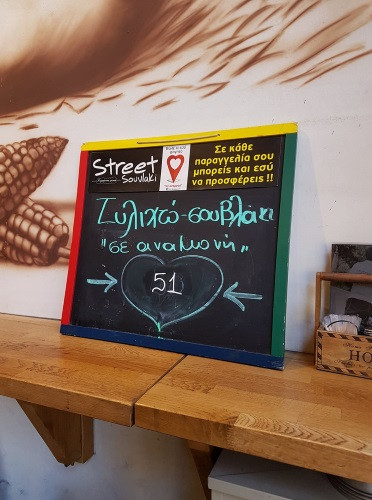 Street
Souvlaki
Σε κάθε
παραγγελία σου
μπορείς και εσύ
να προσφέρεις !!
Τυλιχτό-σουβλάκι
"σε αναμονή"
51
HO